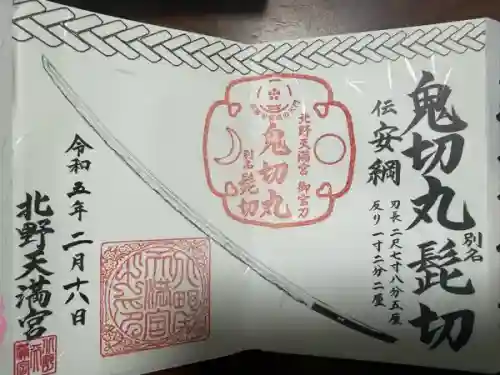 鬼切丸 別名 髭切
伝 安綱
刃長 二尺七寸八分五厘
反り 一寸二分二厘
北野天満宮 御宮刀
鬼切丸
別名 髭切
令和五年 二月十八日
北野天満宮